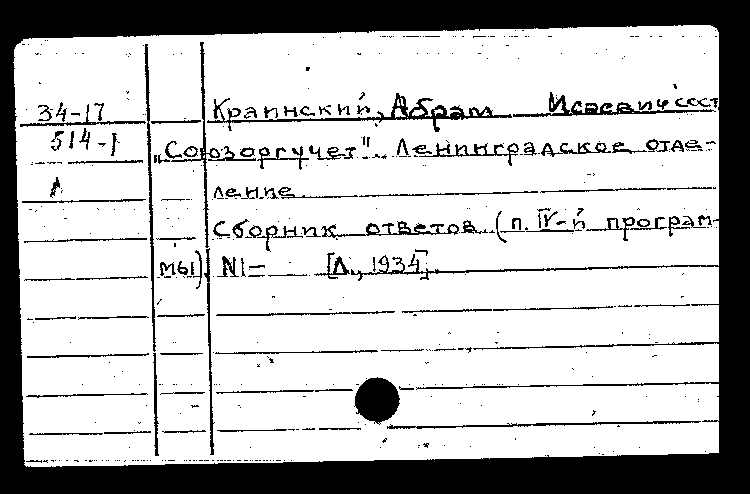 34-17 Краинский, Абрам Исаевич сост
514-1 „Союзоргучет". Ленинградское отде-
Л ление.
Сборник ответов (п. IV-й програм-
мы). N1- [Л., 1934].